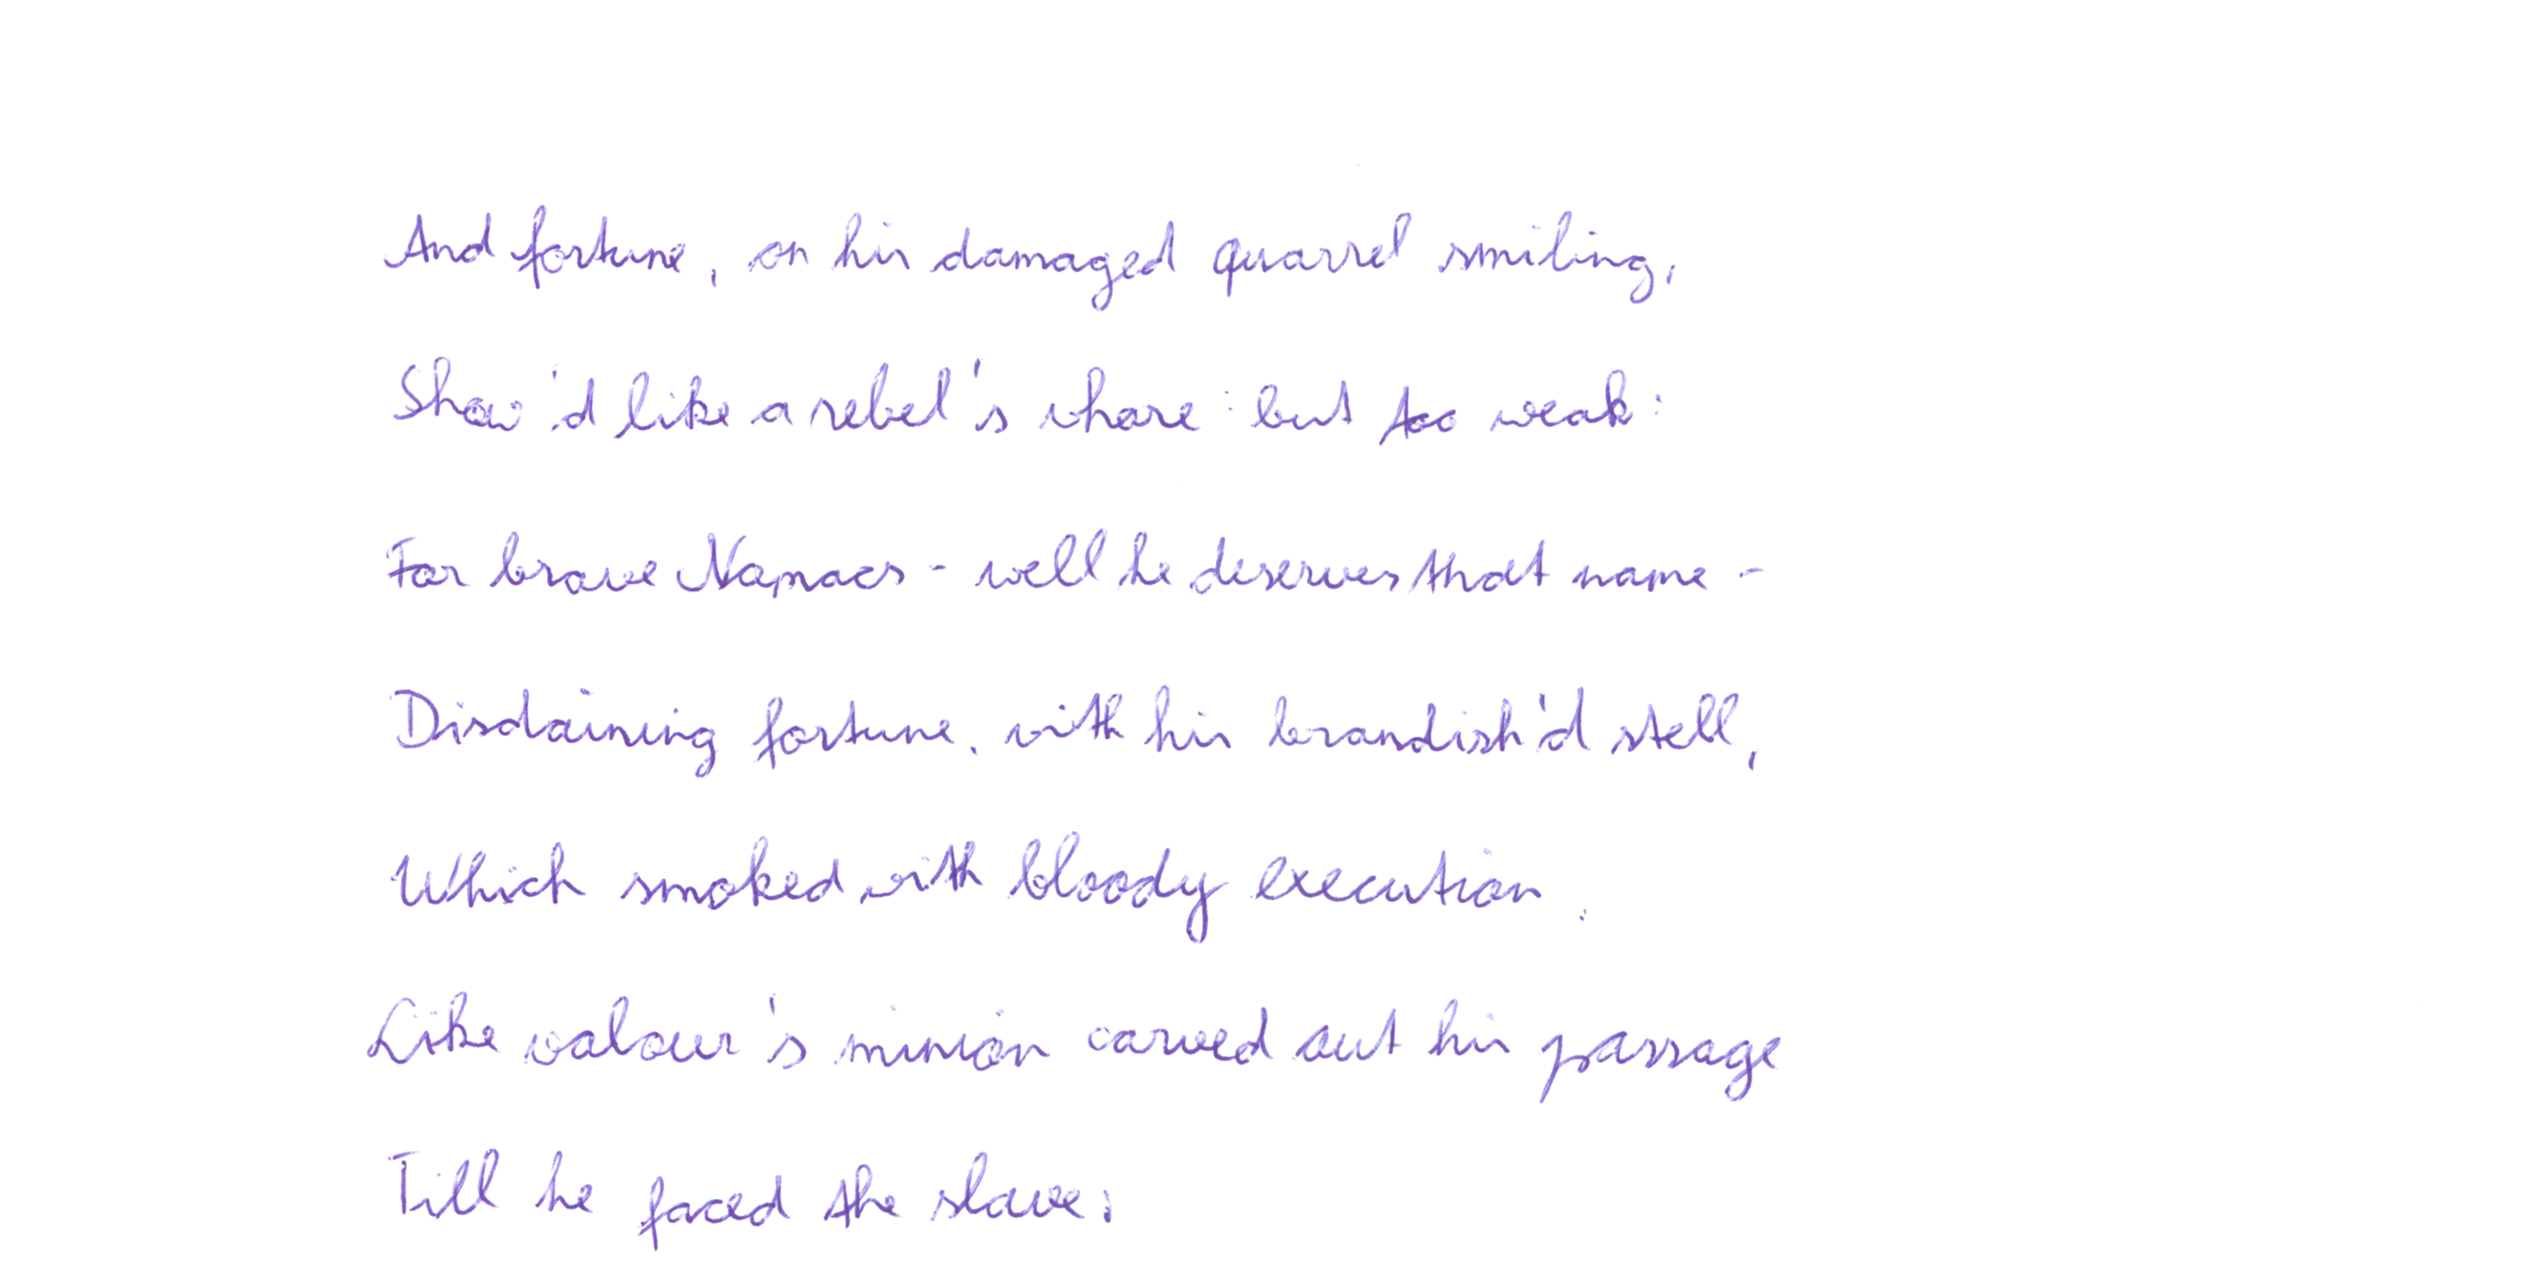 And fortune, on his damaged quarrel smiling,
Show'd like a rebel's whore: but too weak:
For brave Namaes - well he deserves that name -
Disdaining fortune, with his brandish'd stell,
Which smoked with bloody execution,
Like valour's minion carved out his passage
Till he faced the slave;